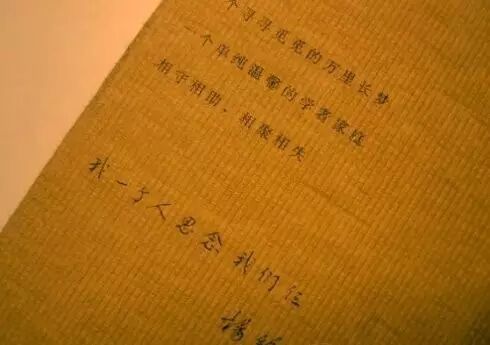 个寻寻觅觅的万里长梦
一个单纯温馨的学者家庭
相守相助，相聚相失
我一个人思念我们仨
楊